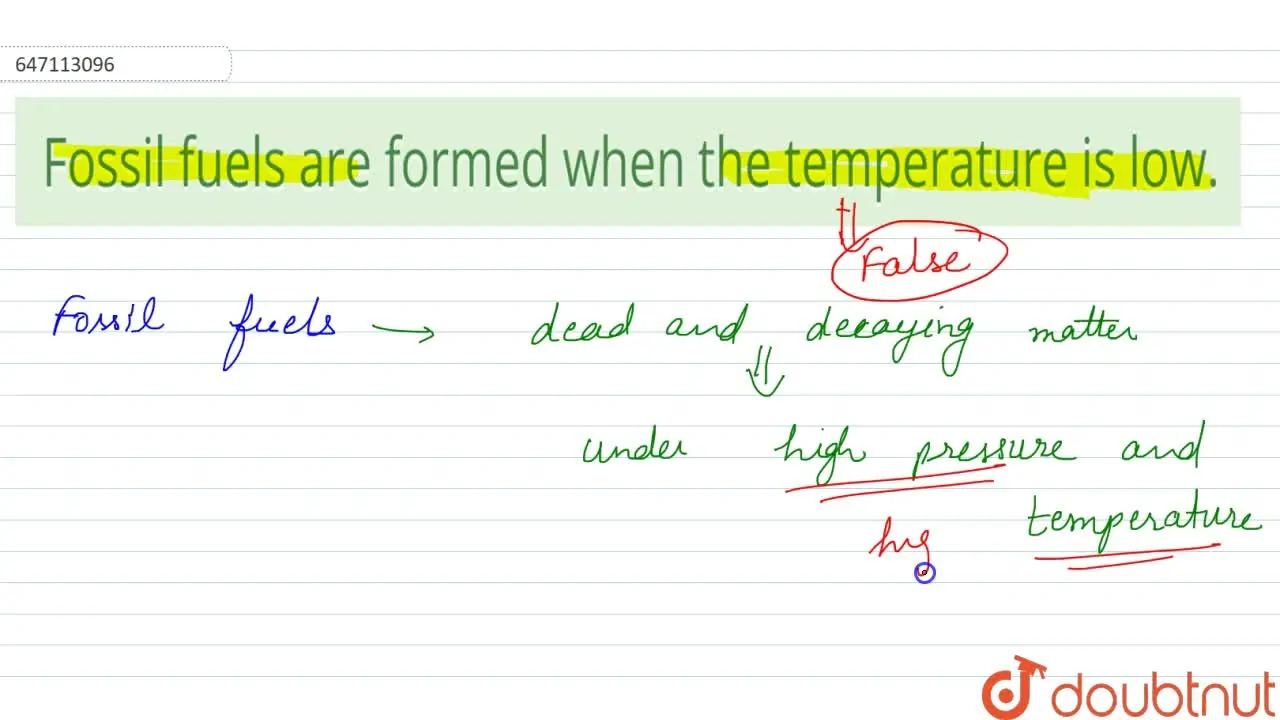 647113096
Fossil fuels are formed when the temperature is low.
False
Fossil fuels → dead and decaying matter
under high pressure and
temperature
hig
doubtnut